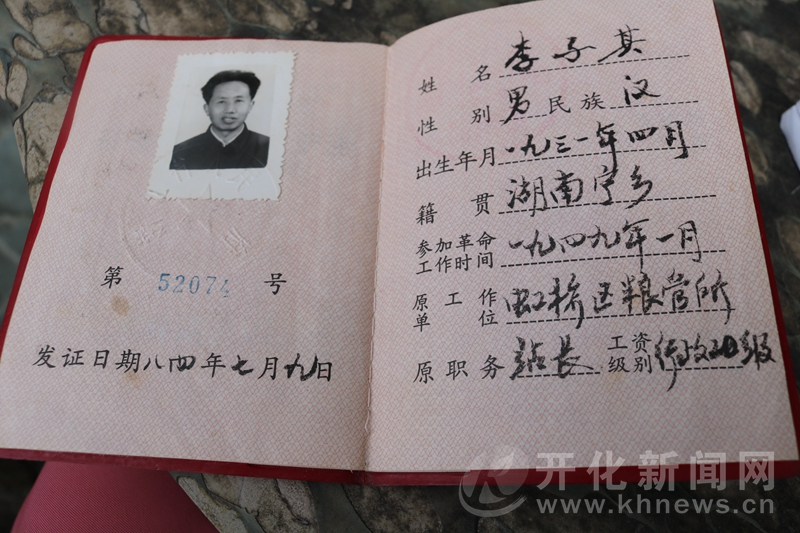 第 52074 号
发证日期八四年七月九日
姓名 李子其
性别 男 民族 汉
出生年月 一九三一年四月
籍贯 湖南宁乡
参加革命工作时间 一九四九年一月
原工作单位 虹桥区粮管所
原职务 站长 工资级别 行政20级
开化新闻网
www.khnews.cn